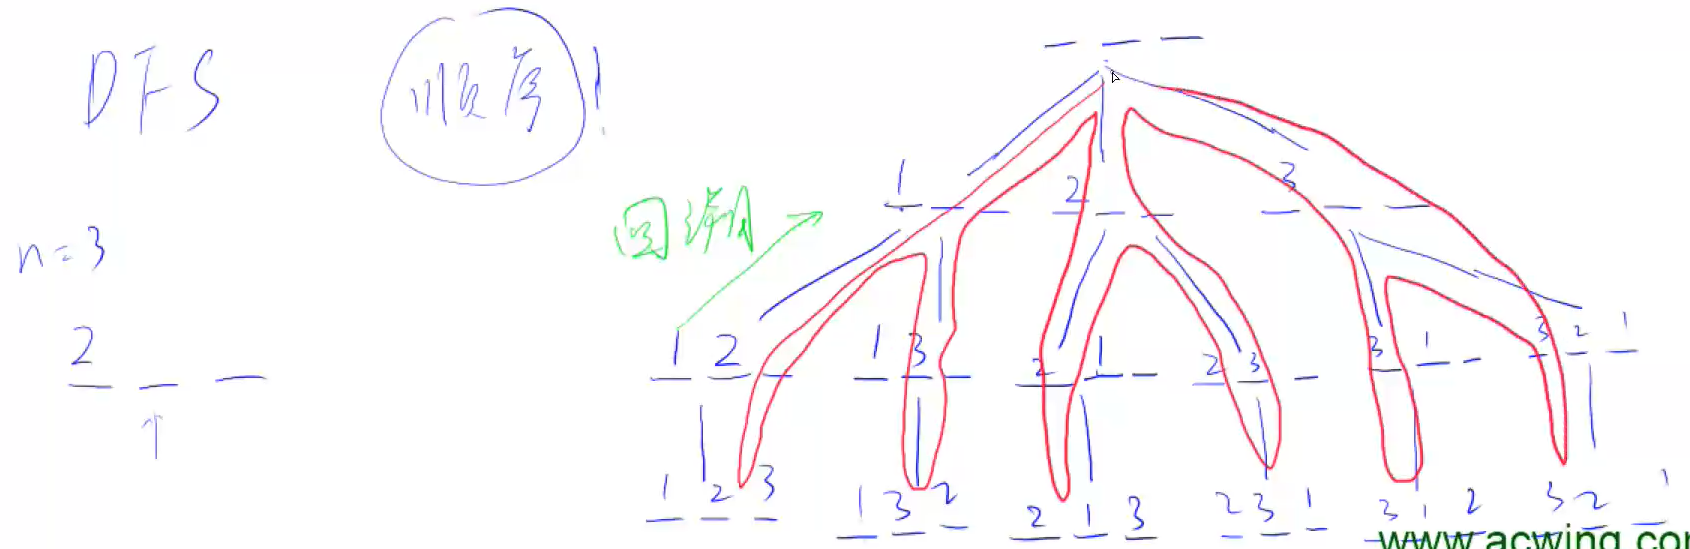 DFS 顺序!
1 2 3
回溯
n=3
2
1 2 1 3 2 1 2 3 3 1 3 2 1
1 2 3 1 3 2 2 1 3 2 3 1 3 1 2 3 2 1
www.acwing.com